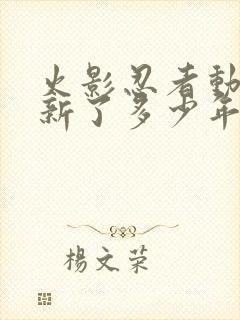 火影忍者動
新了多少年
楊文荣